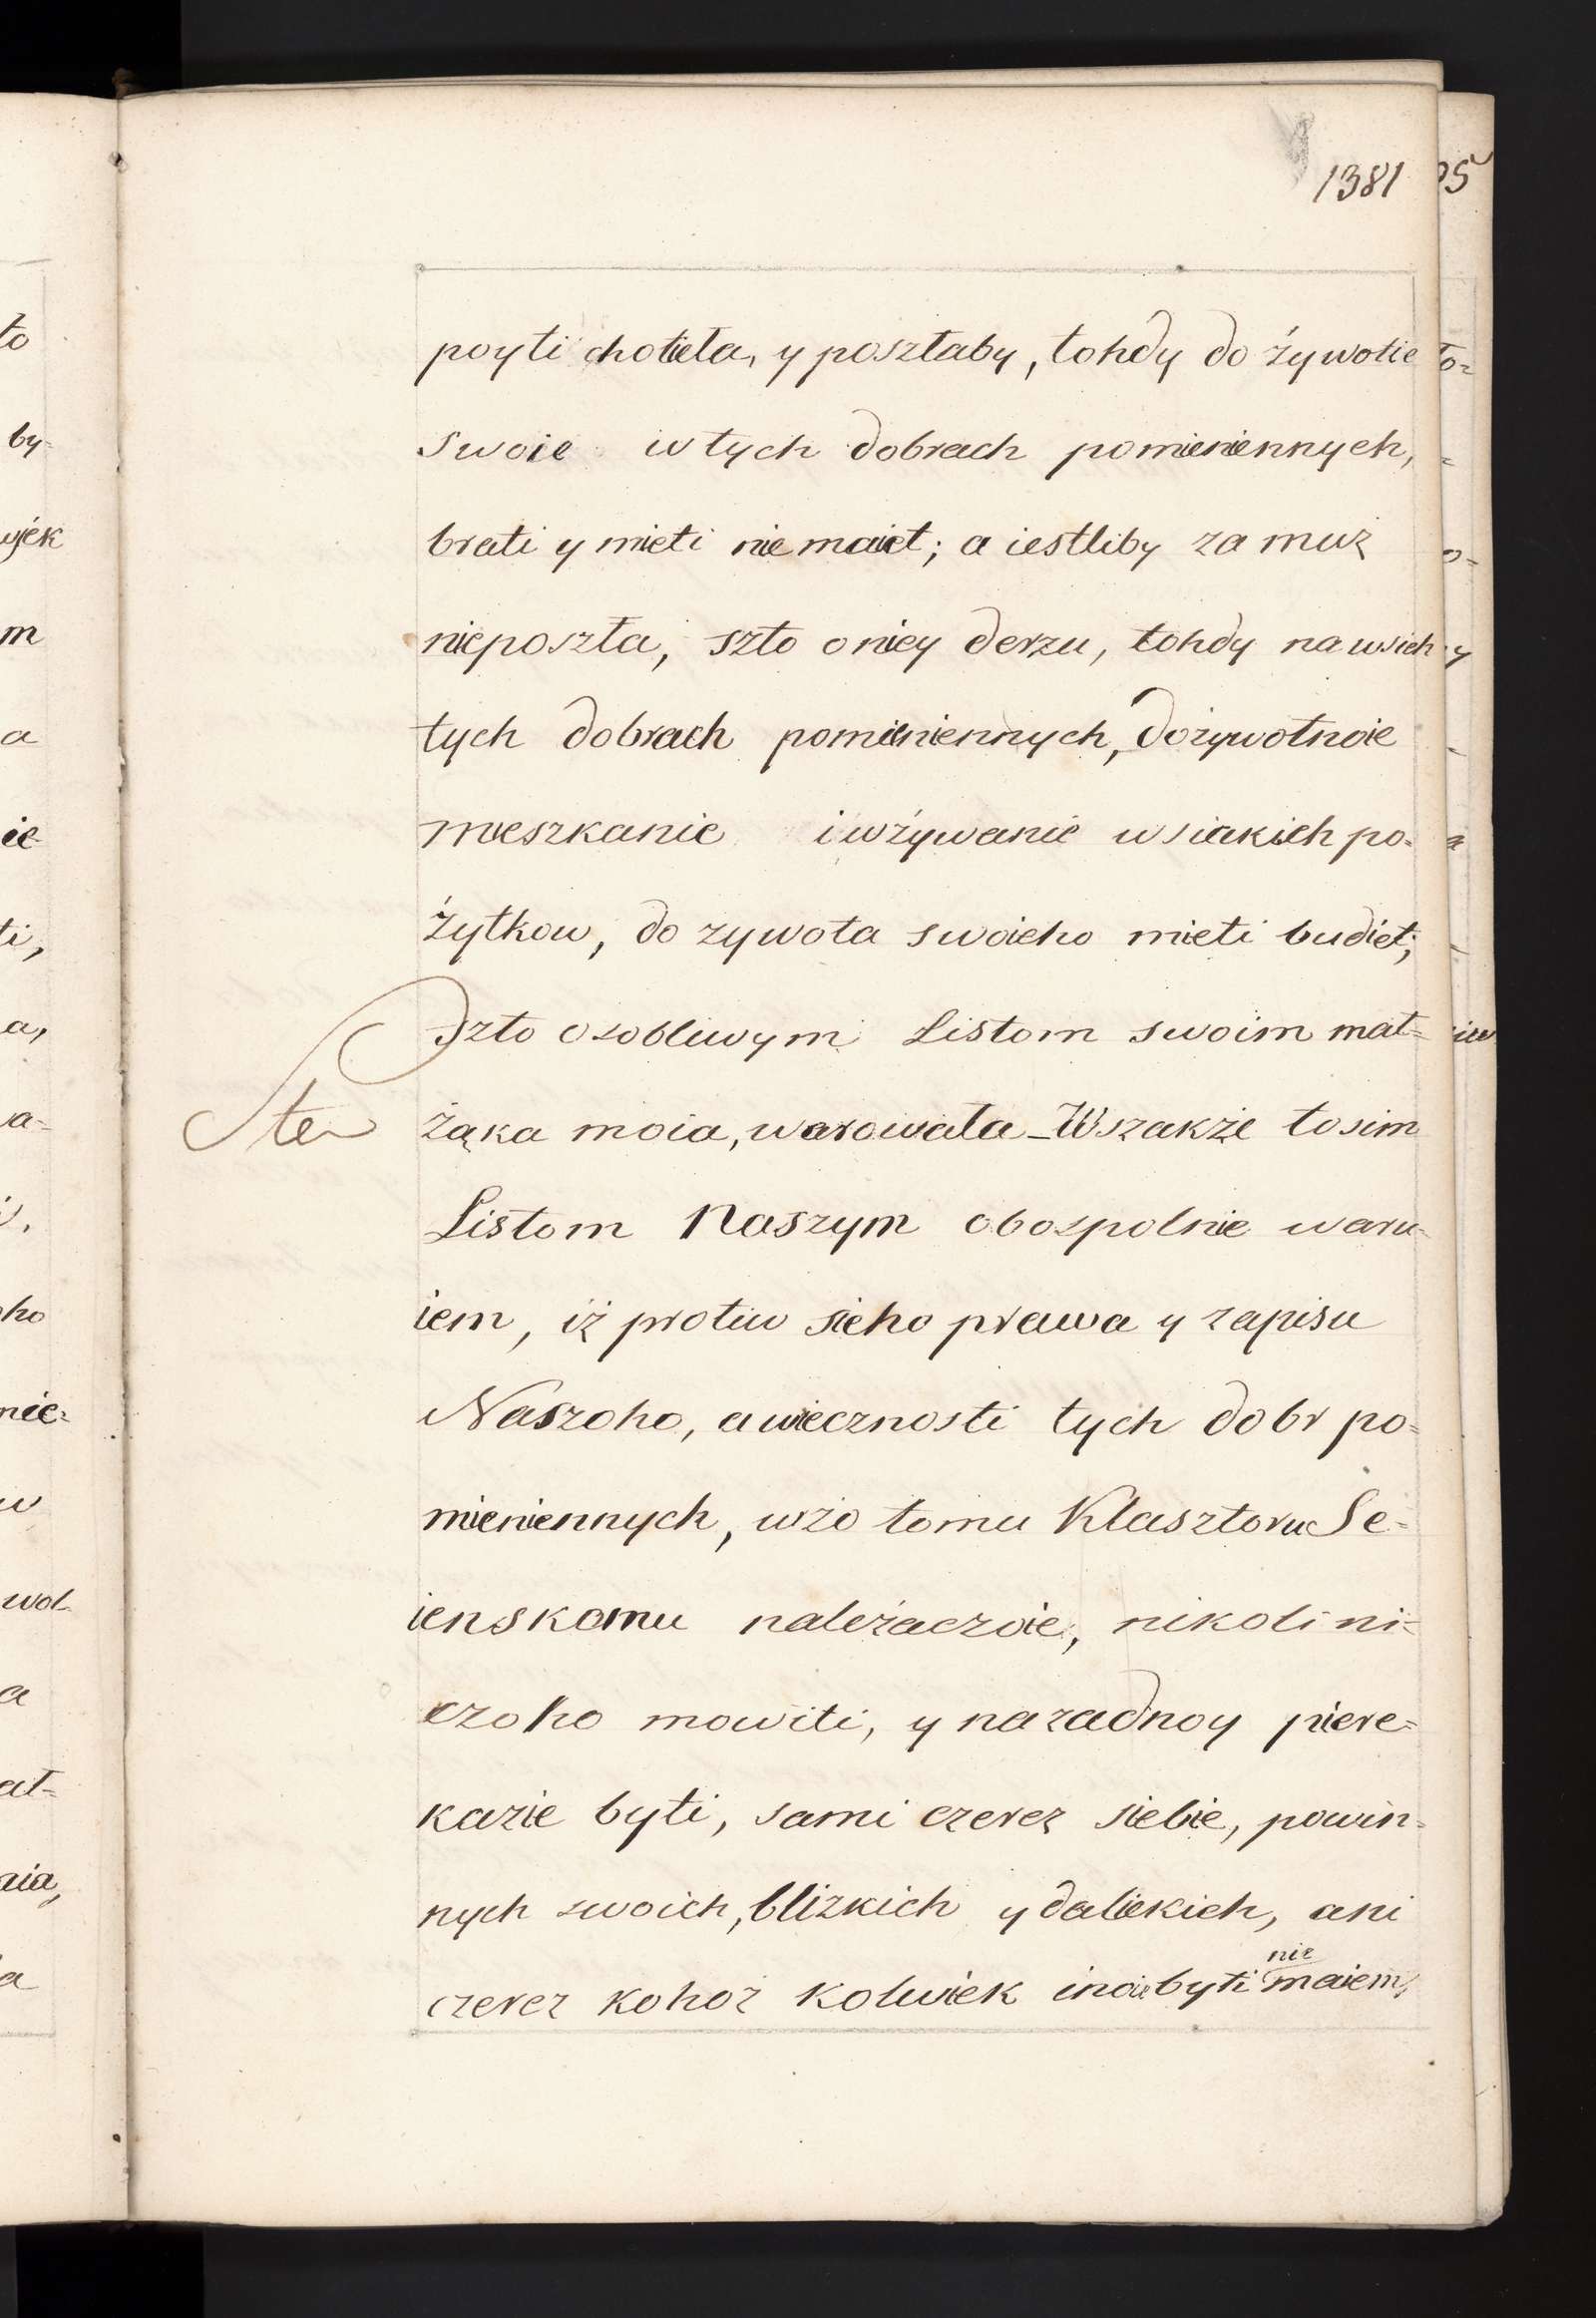 1381
poyti chotieła, y poszłaby, tohdy do żywotie
swoie w tych dobrach pomieniennych,
brati y mieti nie maiet; a iestliby za muż
nieposzła, szto o niey derzu, tohdy na wsich
tych dobrach pomieniennych, dożywotnoie
mieszkanie i wżywanie wsiakich po=
żytkow, do zywota swoieho mieti budiet;
szto osobliwym Listom swoim mał=
żąka moia, warowała _ Wszakże to sim
Listom Naszym obospolnie waru=
iem, iż protiw sieho prawa y zapisu
Naszoho, a wiecznosti tych dobr po=
mieniennych, wżo tomu Klasztoru Se=
ienskomu należaczoie, nikoli ni=
czoho mowiti, y na zadnoy piere=
kazie byti, sami czerez siebie, powin=
nych swoich, blizkich y daliekich, ani
nie
czerez kohoż kolwiek inoie byti maiem,